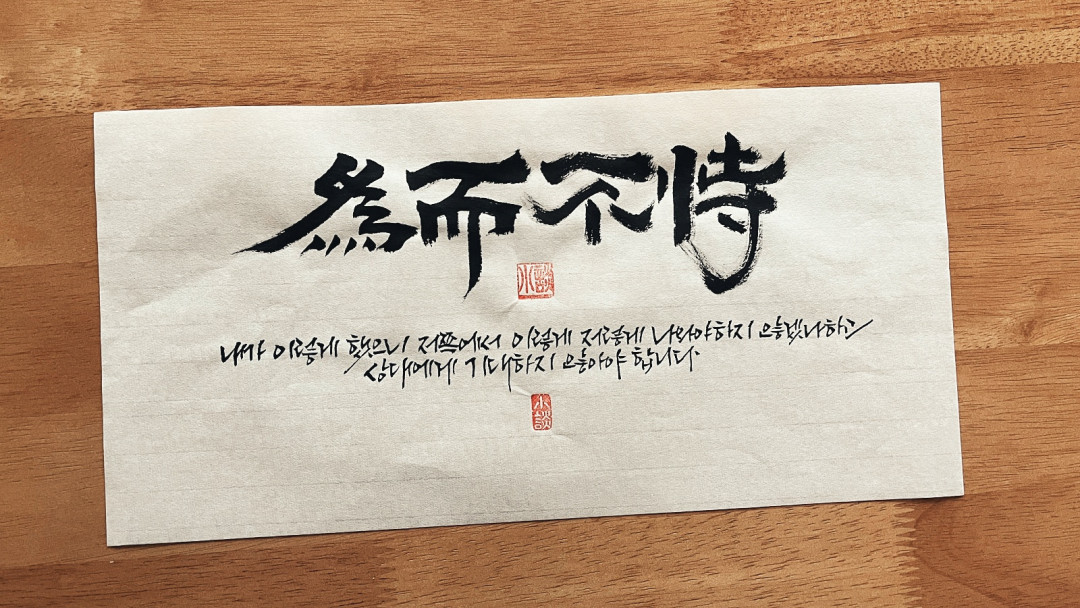 爲而不恃
小談
내가 이렇게 했으니 저쪽에서 이렇게 저렇게 나와야하지 않겠나하고
상대에게 기대하지 않아야 합니다.
小談